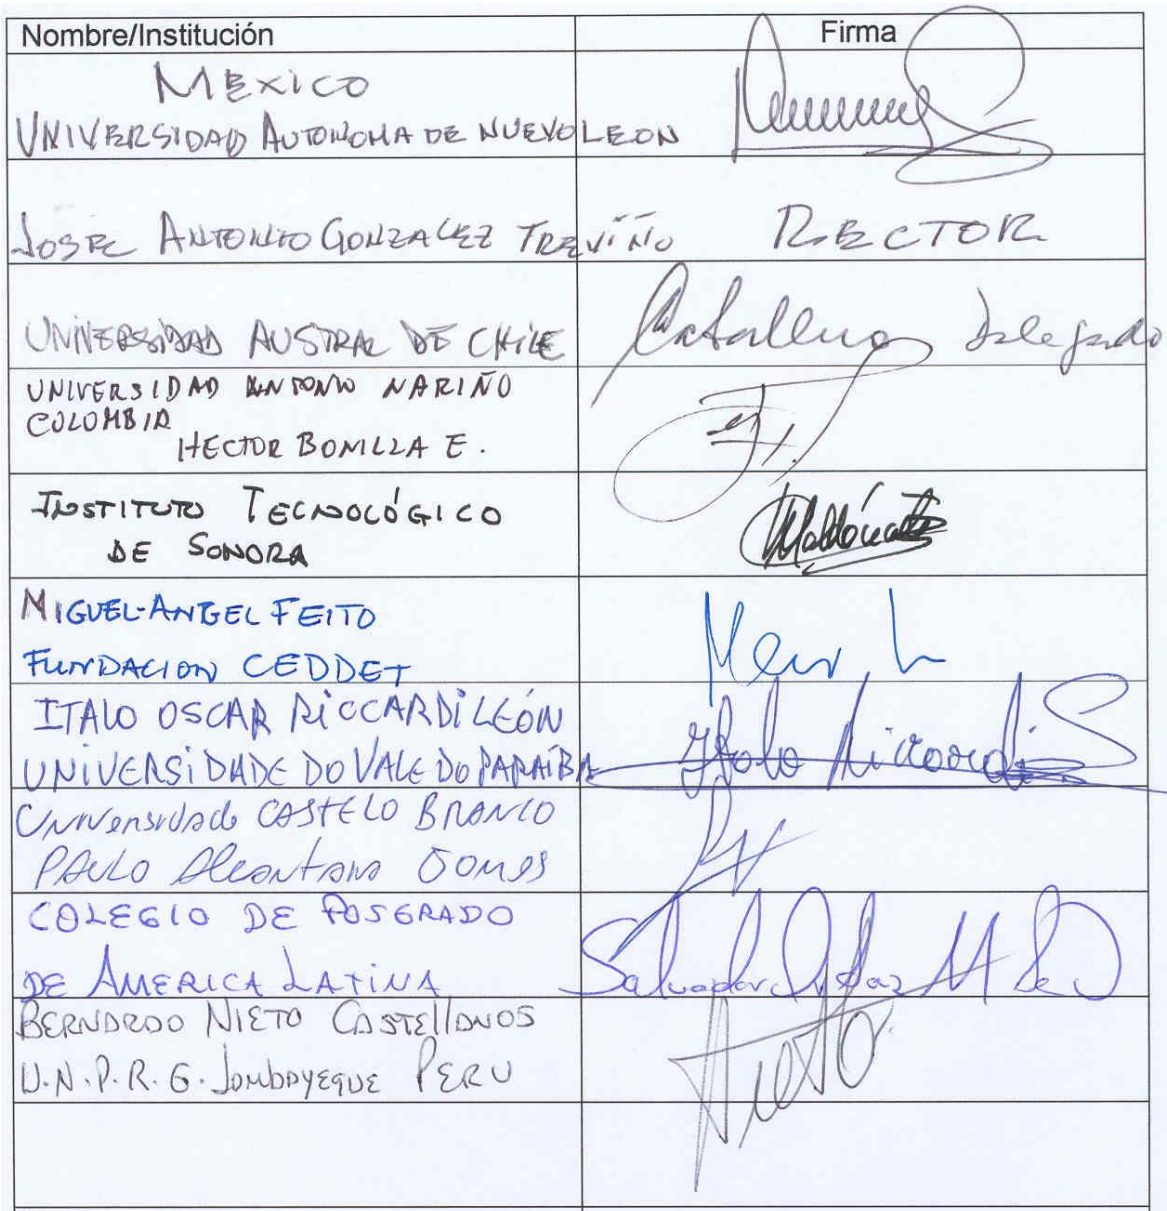 Nombre/Institución Firma
MEXICO
UNIVERSIDAD AUTONOMA DE NUEVO LEON
JOSE ANTONIO GONZALEZ TREVIÑO RECTOR
UNIVERSIDAD AUSTRAL DE CHILE Delegado
UNIVERSIDAD ANTONIO NARIÑO
COLOMBIA
HECTOR BONILLA E.
INSTITUTO TECNOLÓGICO
DE SONORA Maldonado
MIGUEL-ANGEL FEITO
FUNDACION CEDDET
ITALO OSCAR RICCARDI LEÓN
UNIVERSIDADE DO VALE DO PARAÍBA Italo Riccardi
Universidade CASTELO BRANCO
PAULO Alcantara GOMES
COLEGIO DE POSGRADO
DE AMERICA LATINA Salvador
BERNARDO NIETO CASTELLANOS
U.N.P.R.G. LAMBAYEQUE PERU Nieto